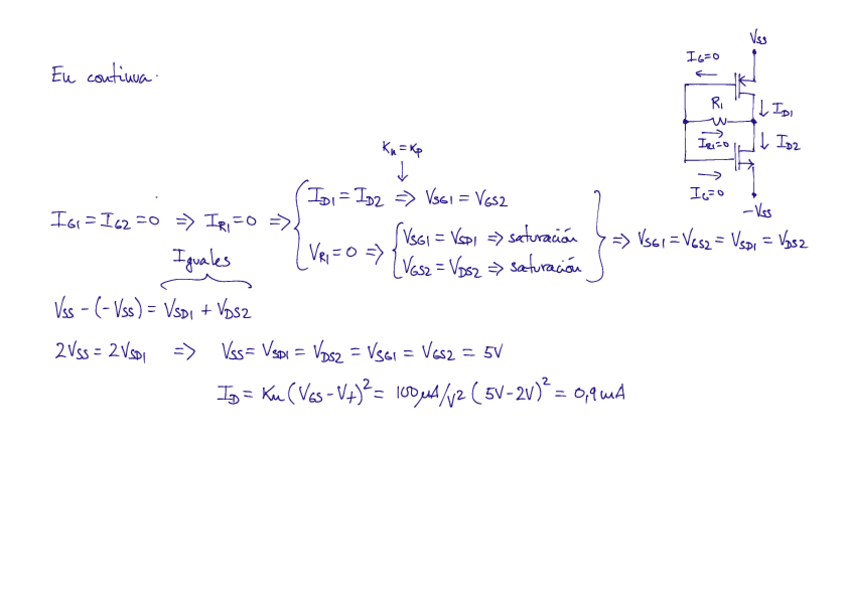 En continua.
V_SS
I_G=0
R_1
I_D1
I_R1=0
I_D2
I_G=0
-V_SS
K_n = K_p
I_G1 = I_G2 = 0 => I_R1 = 0 =>
I_D1 = I_D2 => V_SG1 = V_GS2
V_R1 = 0 =>
V_SG1 = V_SD1 => saturación
V_GS2 = V_DS2 => saturación
=> V_SG1 = V_GS2 = V_SD1 = V_DS2
Iguales
V_SS - (-V_SS) = V_SD1 + V_DS2
2V_SS = 2V_SD1 => V_SS = V_SD1 = V_DS2 = V_SG1 = V_GS2 = 5V
I_D = K_n (V_GS - V_t)^2 = 100 μA/V2 (5V - 2V)^2 = 0,9 mA